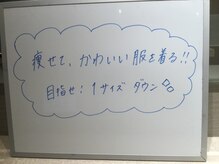 痩せて、かわいい服を着る!!
目指せ:1サイズダウン